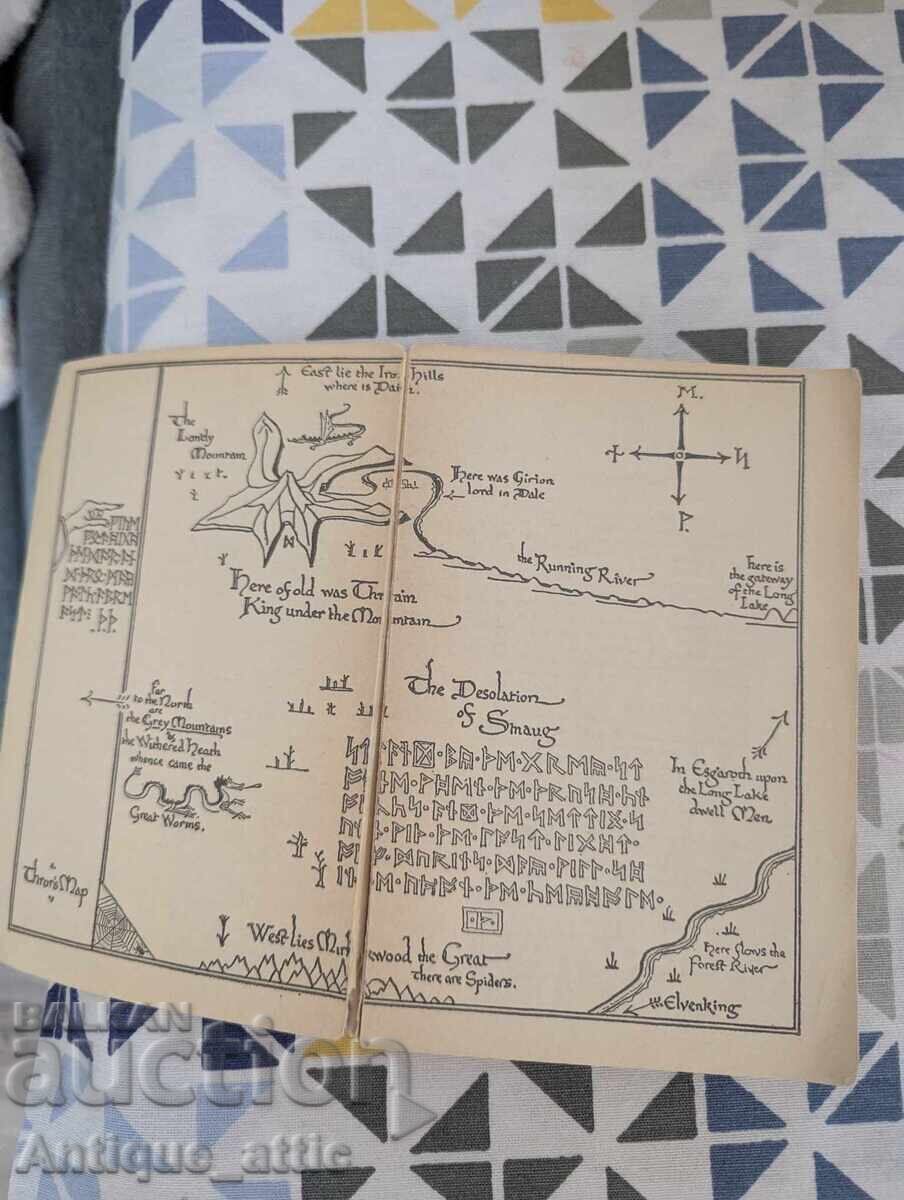 East lie the Iron Hills
where is Dain.
The
Lonely
Mountain
Here was Girion
lord in Dale
ᛗ.
ᚻ
ᚹ.
the Running River
Here is
the gateway
of the Long
Lake
Here of old was Thrain
King under the Mountain
Far
to the North
are
the Grey Mountains
&
the Withered Heath
whence came the
Great Worms.
The Desolation
of Smaug
ᚪᚾᛞ·ᛒᚣ·ᚦᛖ·ᚷᚱᛖᚣ·ᛋᛏ
ᚾᛖ·ᚹᚻᛖᚾ·ᚦᛖ·ᚦᚱᚢᛋᚻ·ᚳᚾ
ᚪᚾᛞ·ᚦᛖ·ᛋᛖᛏᛏᛁᚾᚷ·ᛋ
ᚹᛁᚦ·ᚦᛖ·ᛚᚪᛋᛏ·ᛚᛁᚷᚻᛏ·
ᛞᚢᚱᛁᚾᛋ·ᛞᚪᚣ·ᚹᛁᛚᛚ·ᛋᚻ
ᚢᛈᚩᚾ·ᚦᛖ·ᚳᛖᚣᚻᚩᛚᛖ·
In Esgaroth upon
the Long Lake
dwell Men
Thror's Map
West lies Mirkwood the Great
There are Spiders.
Here flows the
Forest River
Elvenking
BALKAN
auction
Antique_attic